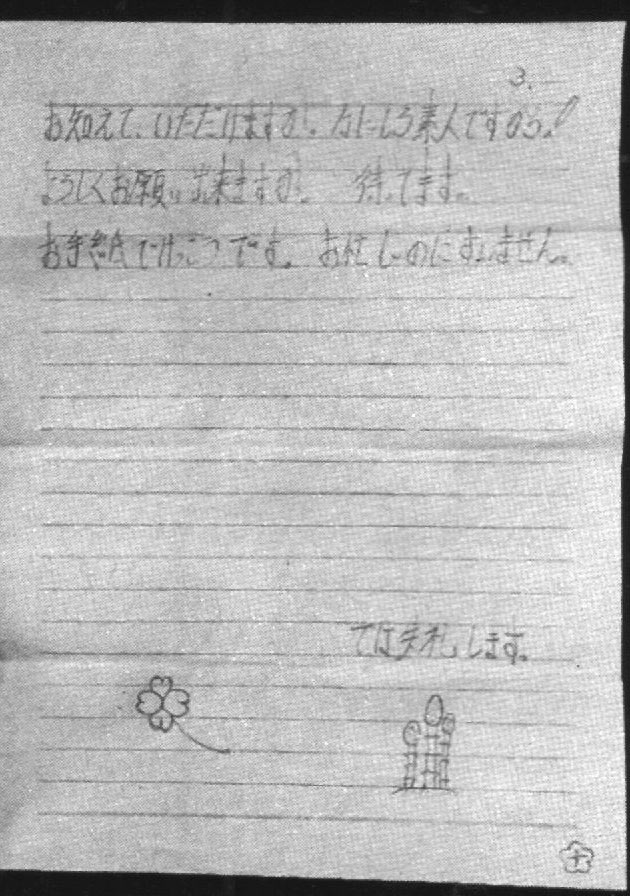 3.
お知えて、いただけますか。なにしろ素人ですのう。!
よろしくお願い出来ますか。 待ってます。
お手紙でけっこうです。 お忙しいのにすいません。
では失礼します。